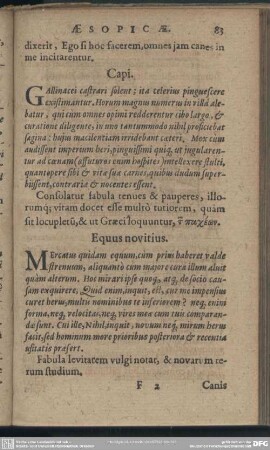 ÆSOPICÆ. 83
dixerit, Ego si hoc facerem, omnes jam canes in
me incitarentur.
Capi.
GAllinacei castrari solent; ita celerius pinguescere
existimantur. Horum magnus numerus in villâ ale-
batur, qui cum omnes opimi redderentur cibo largo, &
curatione diligente, in uno tantummodo nihil proficiebat
sagina: hujus macilentiam irridebant cæteri. Mox cum
audissent imperium heri, pinguissimi quiq; ut jugularen-
tur ad cœnam (affuturos enim hospites) intellexere stulti,
quantopere sibi & vitæ suæ carnes, quibus dudum super-
biissent, contrariæ & nocentes essent.
Consolatur fabula tenues & pauperes, illo-
rumq; vitam docet esse multò tutiorem, quàm
sit locupletũ, & ut Græci loquuntur, τ̃ παχέων.
Equus novitius.
MErcatus quidam equum, cum prim haberet valde
strenuum, aliquantò cum majore cura illum aluit
quàm alterum. Hoc mirari ipse quoq;, atq; de socio cau-
sam exquirere, Quid enim, inquit, est, cur me impensius
curet herus, multis nominibus te inferiorem? neq; enim
forma, neq; velocitas, neq; vires meæ cum tuis comparan-
dæ sunt. Cui ille, Nihil, inquit, novum neq; mirum herus
facit, sed hominum more prioribus posteriora & recentia
usitatis præfert.
Fabula levitatem vulgi notat, & novarum re-
rum studium.
F 2 Canis